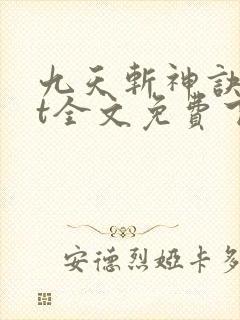 九天斬神訣
t全文免費下
安德烈婭卡多